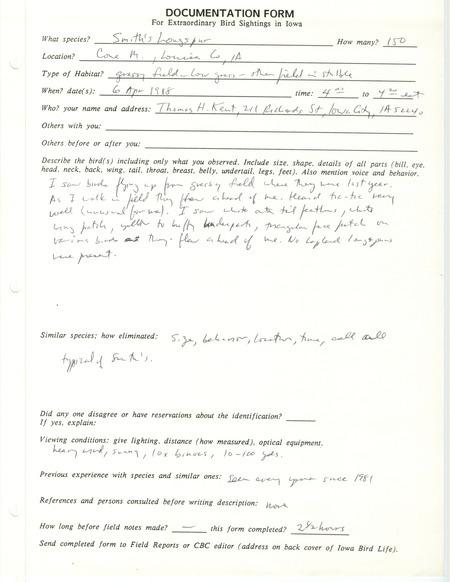 DOCUMENTATION FORM
For Extraordinary Bird Sightings in Iowa
What species? Smith's Longspur How many? 150
Location? Cone M., Louisa Co, IA
Type of Habitat? grassy field - low grass - other field in stubble
When? date(s): 6 Apr 1988 time: 4 to 4
Who? your name and address: Thomas H. Kent, 211 Richards St, Iowa City, IA 52240
Others with you:
Others before or after you:
Describe the bird(s) including only what you observed. Include size, shape, details of all parts (bill, eye,
head, neck, back, wing, tail, throat, breast, belly, undertail, legs, feet). Also mention voice and behavior.
I saw birds flying up from grassy field where they were last year.
As I walk in field they flew ahead of me. Heard tic-tic very
well (unusual for me). I saw white outer tail feathers, white
wing patch, yellow to buffy underparts, triangular face patch on
various birds as they flew ahead of me. No Lapland longspurs
were present.
Similar species; how eliminated: Size, behavior, location, time, call all
typical of Smith's.
Did any one disagree or have reservations about the identification?
If yes, explain:
Viewing conditions: give lighting, distance (how measured), optical equipment.
heavy wind, sunny, 10x binocs, 10-100 yds.
Previous experience with species and similar ones: Seen every year since 1981
References and persons consulted before writing description: none
How long before field notes made? — this form completed? 2 1/2 hours
Send completed form to Field Reports or CBC editor (address on back cover of Iowa Bird Life).